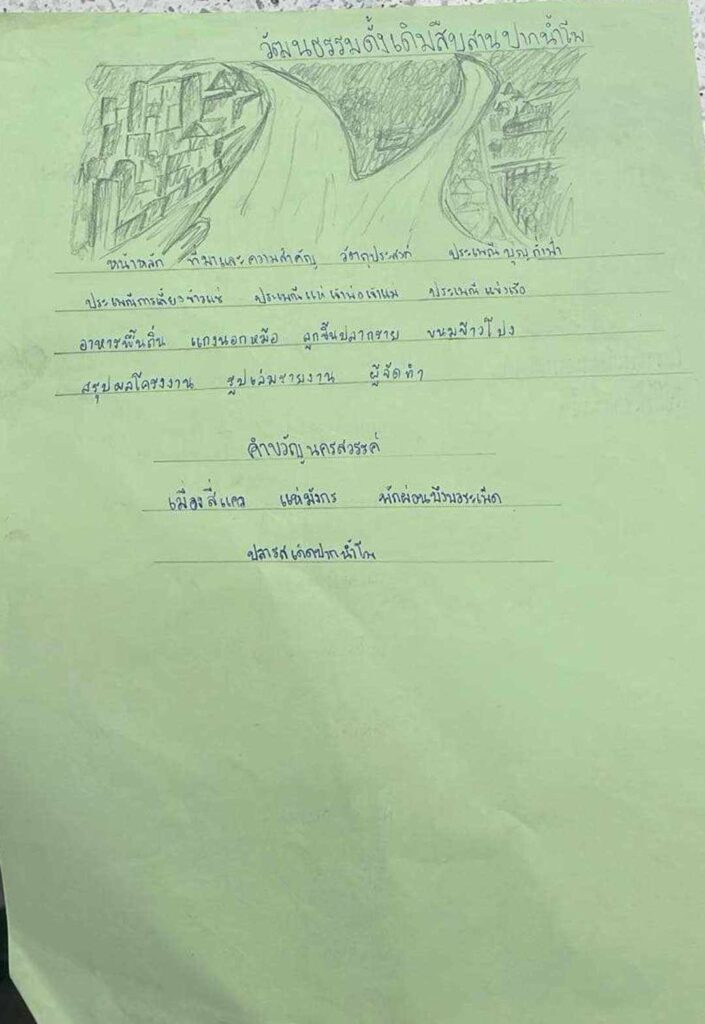 วัฒนธรรมดั้งเดิมสืบสานปากน้ำโพ
หน้าหลัก ที่มาและความสำคัญ วัตถุประสงค์ ประเพณีบุญกำฟ้า
ประเพณีการเกี่ยวข้าวแข่ ประเพณีแห่เจ้าพ่อเจ้าแม่ ประเพณีแข่งเรือ
อาหารพื้นถิ่น แกงนอกหม้อ ลูกชิ้นปลากราย ขนมข้าวโปง
สรุปผลโครงงาน รูปเล่มรายงาน ผู้จัดทำ
คำขวัญนครสวรรค์
เมืองสี่แคว แห่มังกร พักผ่อนบึงบอระเพ็ด
ปลารสเด็ดปากน้ำโพ